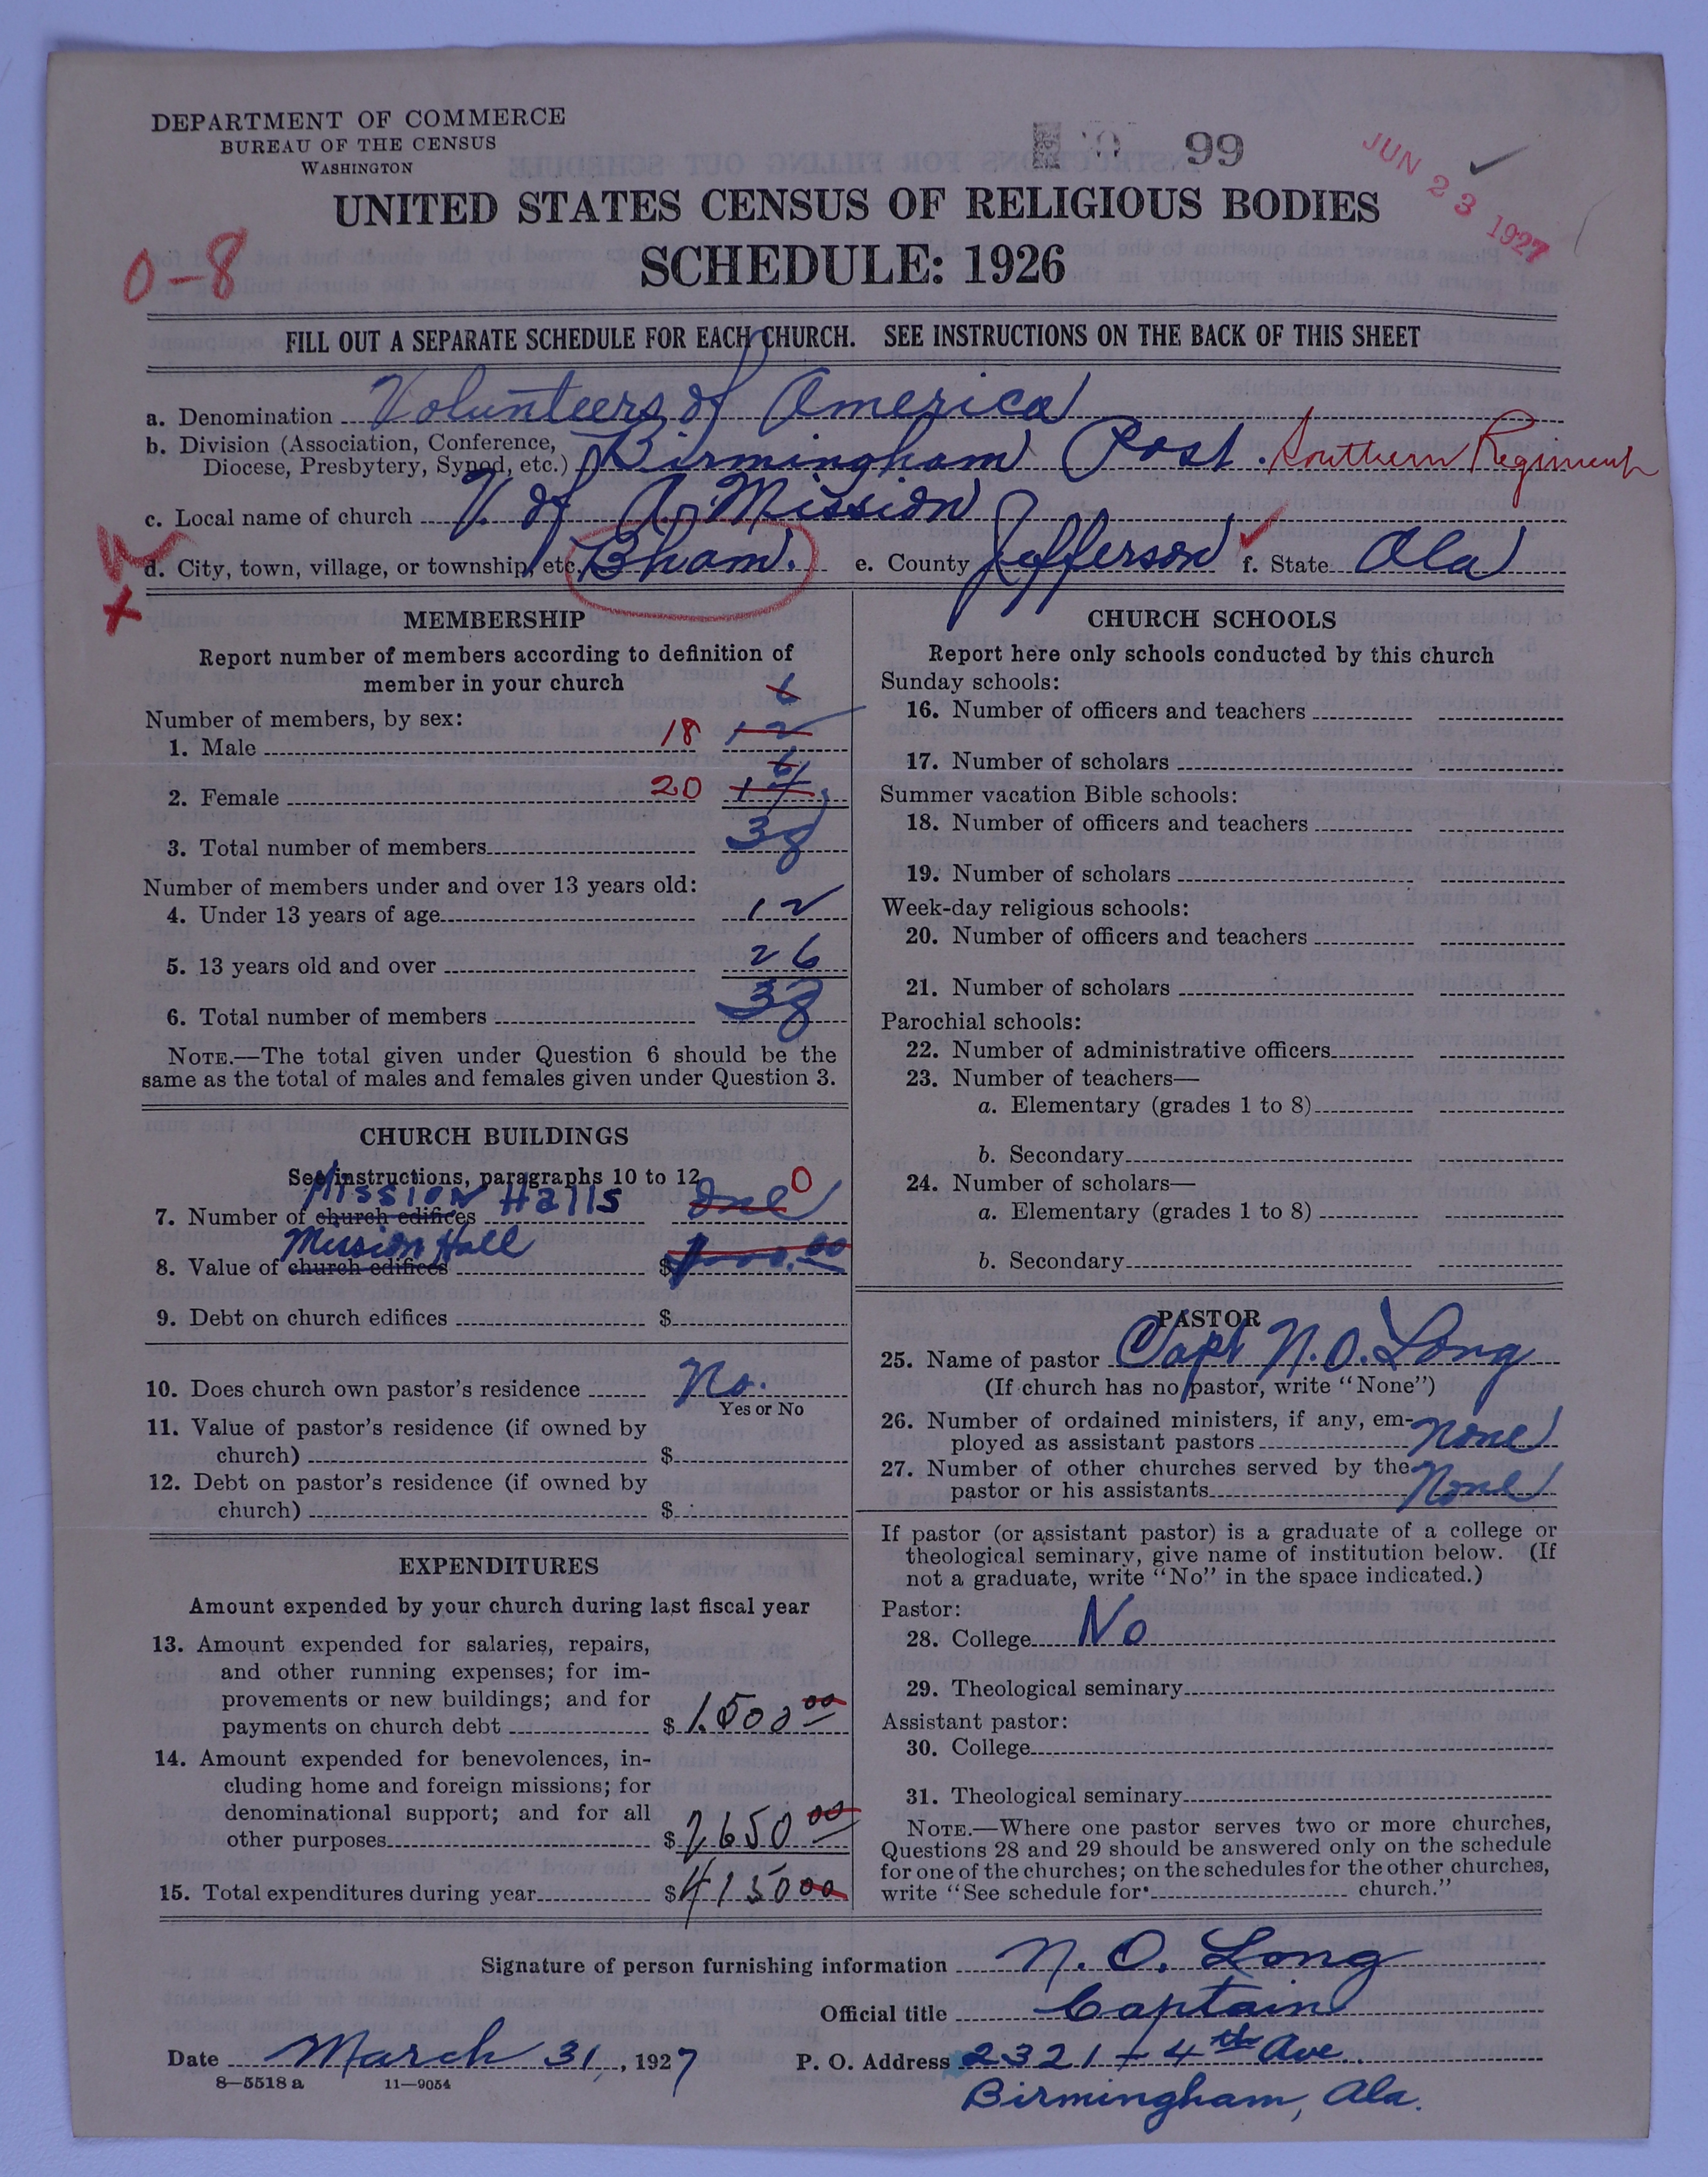 DEPARTMENT OF COMMERCE
BUREAU OF THE CENSUS
WASHINGTON
99
JUN 23 1927
UNITED STATES CENSUS OF RELIGIOUS BODIES
SCHEDULE: 1926
0-8
FILL OUT A SEPARATE SCHEDULE FOR EACH CHURCH. SEE INSTRUCTIONS ON THE BACK OF THIS SHEET
a. Denomination Volunteers of America
b. Division (Association, Conference, Diocese, Presbytery, Synod, etc.) Birmingham Post. Southern Regiment
c. Local name of church V. of A. Mission
d. City, town, village, or township, etc. Bham. e. County Jefferson f. State Ala
MEMBERSHIP
Report number of members according to definition of
member in your church
Number of members, by sex:
6
1. Male 18 12
6
2. Female 20 14
3. Total number of members 38
Number of members under and over 13 years old:
4. Under 13 years of age 12
5. 13 years old and over 26
6. Total number of members 38
NOTE.—The total given under Question 6 should be the
same as the total of males and females given under Question 3.
CHURCH BUILDINGS
See instructions, paragraphs 10 to 12
Mission Halls
7. Number of church edifices One 0
Mission Hall
8. Value of church edifices $
9. Debt on church edifices $
10. Does church own pastor's residence No.
Yes or No
11. Value of pastor's residence (if owned by
church) $
12. Debt on pastor's residence (if owned by
church) $
EXPENDITURES
Amount expended by your church during last fiscal year
13. Amount expended for salaries, repairs,
and other running expenses; for im-
provements or new buildings; and for
payments on church debt $ 1.500 00
14. Amount expended for benevolences, in-
cluding home and foreign missions; for
denominational support; and for all
other purposes $ 2650 00
15. Total expenditures during year $ 4150 00
CHURCH SCHOOLS
Report here only schools conducted by this church
Sunday schools:
16. Number of officers and teachers
17. Number of scholars
Summer vacation Bible schools:
18. Number of officers and teachers
19. Number of scholars
Week-day religious schools:
20. Number of officers and teachers
21. Number of scholars
Parochial schools:
22. Number of administrative officers
23. Number of teachers—
a. Elementary (grades 1 to 8)
b. Secondary
24. Number of scholars—
a. Elementary (grades 1 to 8)
b. Secondary
PASTOR
25. Name of pastor Capt N. O. Long
(If church has no pastor, write "None")
26. Number of ordained ministers, if any, em-
ployed as assistant pastors none
27. Number of other churches served by the
pastor or his assistants None
If pastor (or assistant pastor) is a graduate of a college or
theological seminary, give name of institution below. (If
not a graduate, write "No" in the space indicated.)
Pastor:
28. College No
29. Theological seminary
Assistant pastor:
30. College
31. Theological seminary
NOTE.—Where one pastor serves two or more churches,
Questions 28 and 29 should be answered only on the schedule
for one of the churches; on the schedules for the other churches,
write "See schedule for church."
Signature of person furnishing information N. O. Long
Official title Captain
Date March 31, 1927 P. O. Address 2321-4th Ave.
8—5518 a 11—9054
Birmingham, Ala.